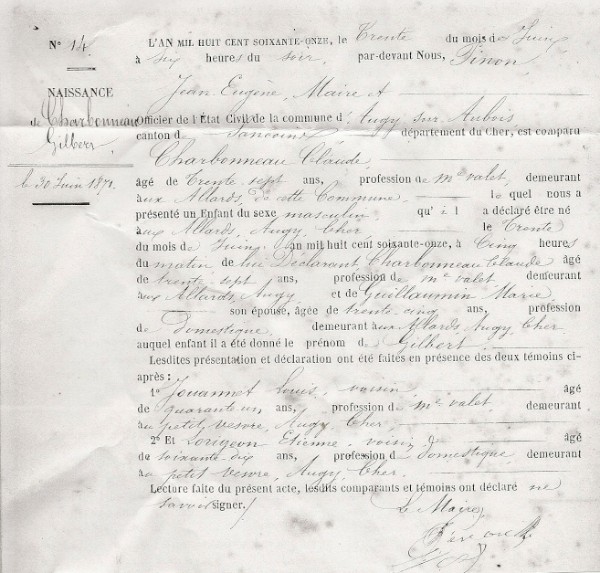 N° 14.
NAISSANCE
de Charbonneau
Gilbert
le 30 Juin 1871.
L'AN MIL HUIT CENT SOIXANTE-ONZE, le Trente du mois de Juin
à six heures du soir par-devant Nous, Pinon,
Jean Eugène, Maire et
Officier de l'État Civil de la commune d'Augy sur Aubois
canton de Sancoins département du Cher, est comparu
Charbonneau Claude,
âgé de Trente sept ans, profession de md valet, demeurant
aux Allards, de cette Commune le quel nous a
présenté un Enfant du sexe masculin qu'il a déclaré être né
aux Allards, Augy, Cher, le Trente
du mois de Juin, an mil huit cent soixante-onze, à Cinq heures
du matin de lui Déclarant Charbonneau Claude âgé
de trente sept ans, profession de me valet demeurant
aux Allards, Augy et de Guillaumin Marie
son épouse, âgée de trente cinq ans, profession
de Domestique demeurant aux Allards, Augy, Cher
auquel enfant il a été donné le prénom de Gilbert
Lesdites présentation et déclaration ont été faites en présence des deux témoins ci-
après :
1° Jouannet Louis, voisin, âgé
de quarante un ans, profession de me valet, demeurant
au petit vesvre, Augy, Cher
2° Et Lorigeon Etienne, voisin, de âgé
de soixante-dix ans, profession de Domestique demeurant
au petit vesvre, Augy, Cher.
Lecture faite du présent acte, lesdits comparants et témoins ont déclaré ne
savoir signer.
Le Maire,